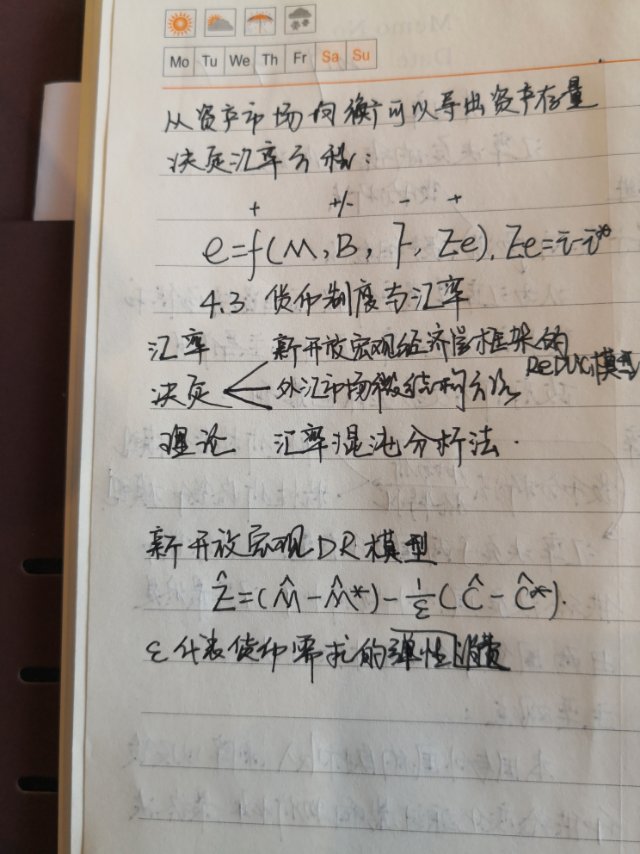 Mo Tu We Th Fr Sa Su
从资产市场均衡可以导出资产存量
决定汇率方程:
+ +/- - +
e=f(M,B,F,Ze). Ze=i-i*
4.3 货币制度与汇率
汇率 新开放宏观经济学框架的ReDUG模型
决定 外汇市场微观结构方法
理论 汇率混沌分析法.
新开放宏观DR模型
Ẑ=(M̂-M̂*)-1/ε(Ĉ-Ĉ*).
ε代表货币需求的弹性消费